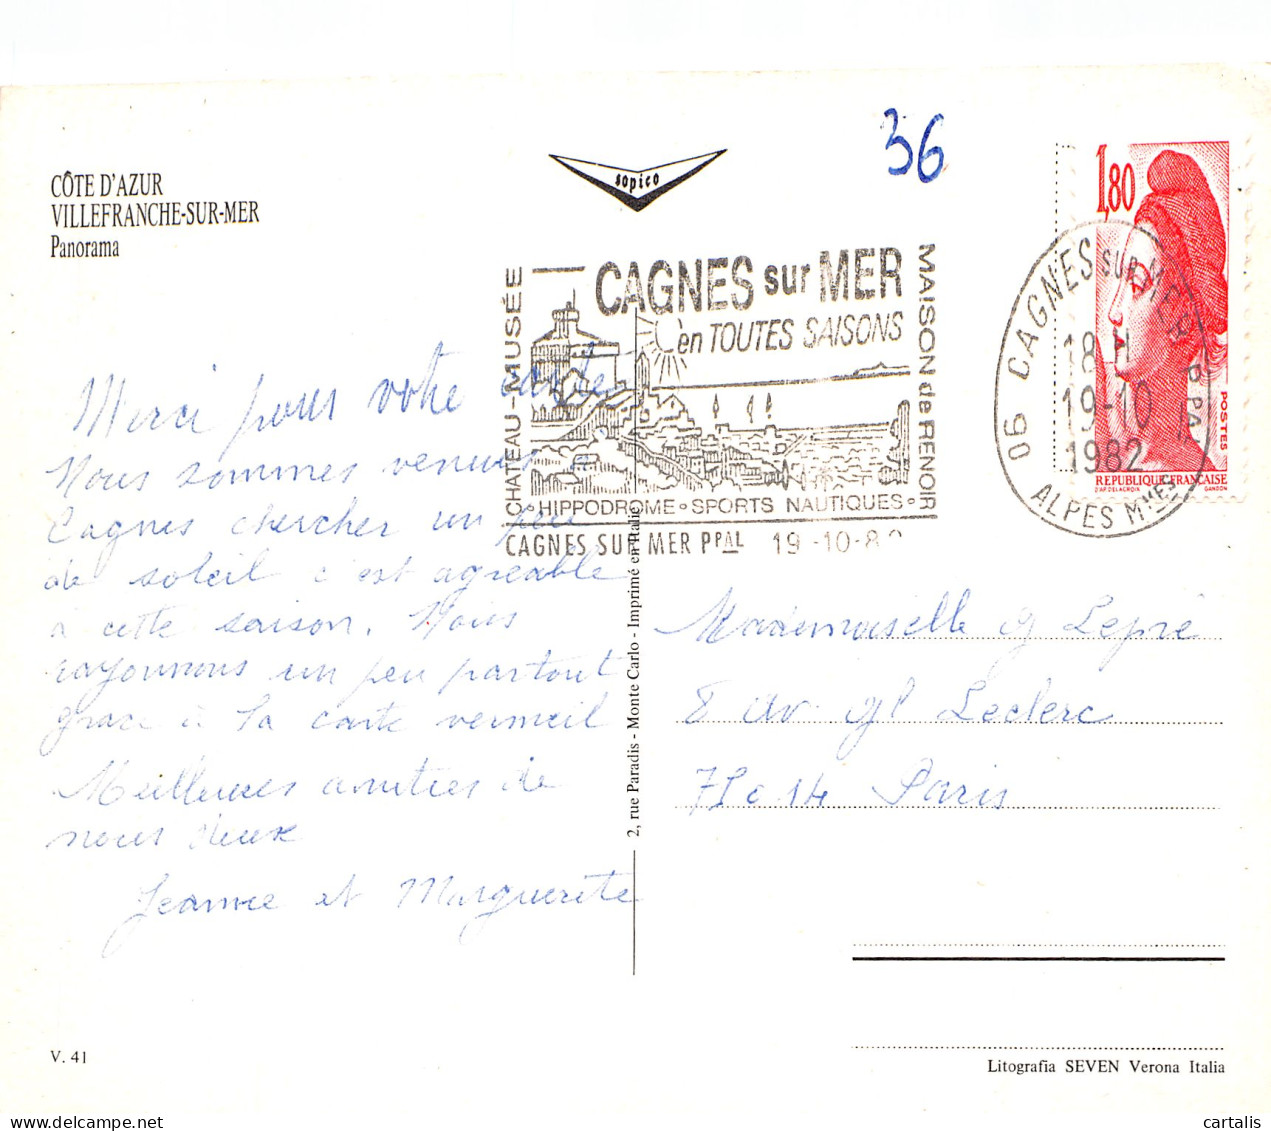 CÔTE D'AZUR
VILLEFRANCHE-SUR-MER
Panorama
sopico
36
1,80
POSTES
REPUBLIQUE FRANÇAISE
D'AP. DELACROIX GANDON
06 CAGNES SUR MER PPAL
18 H
19-10
1982
ALPES MMES
CHATEAU-MUSÉE
CAGNES sur MER
en TOUTES SAISONS
MAISON de RENOIR
HIPPODROME • SPORTS NAUTIQUES •
CAGNES SUR MER PPAL 19-10-8
Merci pour votre carte
Nous sommes venues a
Cagnes chercher un peu
de soleil c'est agreable
a cette saison. Nous
rayonnons un peu partout
grace à la carte vermeil
Meilleures amities de
nous deux
Jeanne et Marguerite
2, rue Paradis - Monte Carlo - Imprimé en Italie
Mademoiselle G Lepié
8 av. Gl Leclerc
75014 Paris
V. 41
Litografia SEVEN Verona Italia
cartalis
delcampe.net